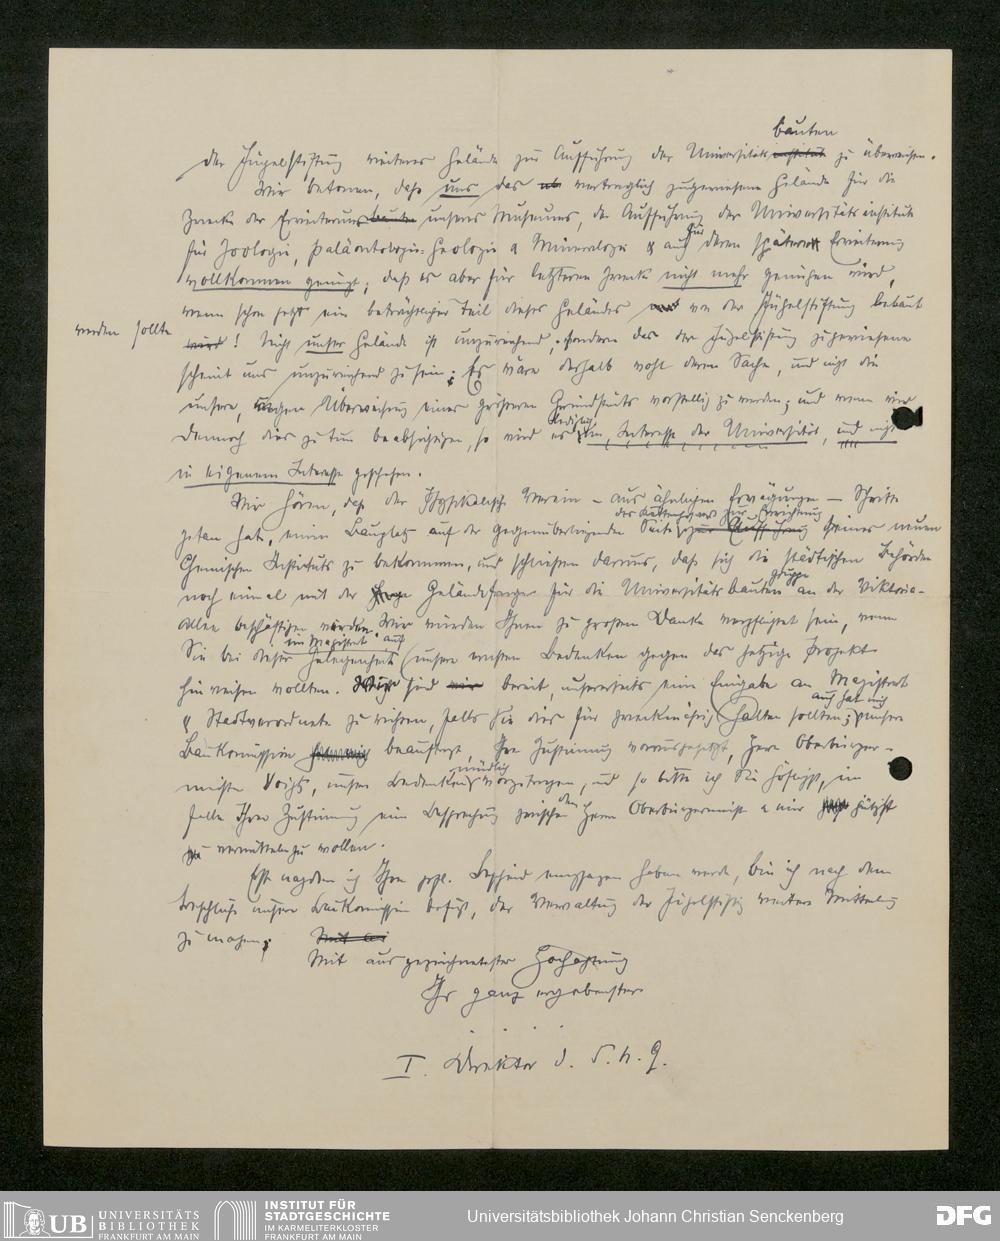 bauten
der Jügelstiftung weiteres Gelände zur Aufführung der Universitäts institute zu überweisen.
Wir betonen, daß uns das vertraglich zugewiesene Gelände für die
Zwecke der Erweiterungsbauten unseres Museums, die Aufführung der Universitätsinstitute
für Zoologie, Paläontologie-Geologie & Mineralogie & auch für deren spätere Erweiterung
vollkommen genügt; daß es aber für letzteren Zweck nicht mehr genügen wird,
wenn schon jetzt ein beträchtlicher Teil dieses Geländes von der Jügelstiftung bebaut
werden sollte
wird! Nicht unser Gelände ist unzureichend, sondern das der Jügelstiftung zugewiesene
scheint uns unzureichend zu sein; Es wäre deshalb wohl deren Sache, und nicht die
unsere, wegen Überweisung eines größeren Grundstücks vorstellig zu werden; und wenn wir
lediglich
dennoch dies zu tun beabsichtigen, so wird es im Interesse der Universität, und nicht
in eigenem Interesse geschehen.
Wir hören, daß der Physikalische Verein – aus ähnlichen Erwägungen – Schritte
des Kettenhofwegs zur Errichtung
getan hat, einen Bauplatz auf der gegenüberliegenden Seite zur Aufführung seines neuen
Chemischen Instituts zu bekommen, und schließen daraus, daß sich die städtischen Behörden
gruppe
noch einmal mit der Geländefrage für die Universitätsbauten an der Viktoria-
Allee beschäftigen werden. Wir würden Ihnen zu großem Danke verpflichtet sein, wenn
im Magistrat auf
Sie bei dieser Gelegenheit unsere ernsten Bedenken gegen das jetzige Projekt
hinweisen wollten. Wir sind wir bereit, unsererseits eine Eingabe an Magistrat
auch hat mich
& Stadtverordnete zu richten, falls Sie dies für zweckmäßig halten sollten; unsere
Baukommission beauftragt, Ihre Zustimmung vorausgesetzt, Herrn Oberbürger-
mündlich
meister Voigt, unsere Bedenken vorzutragen, und so bitte ich Sie höflichst, im
dem
Falle Ihrer Zustimmung eine Besprechung zwischen Herrn Oberbürgermeister & mir gütigst
zu vermitteln zu wollen.
Erst nachdem ich Ihren gefl. Bescheid empfangen haben werde, bin ich nach dem
Beschluß unserer Baukommission befugt, der Verwaltung der Jügelstiftung weitere Mitteilung
zu machen.
Mit ausgezeichnetster Hochachtung
Ihr ganz ergebenster
. . . .
I. Direktor d. S. n. G.
UB UNIVERSITÄTS
BIBLIOTHEK
FRANKFURT AM MAIN
INSTITUT FÜR
STADTGESCHICHTE
IM KARMELITERKLOSTER
FRANKFURT AM MAIN
Universitätsbibliothek Johann Christian Senckenberg
DFG